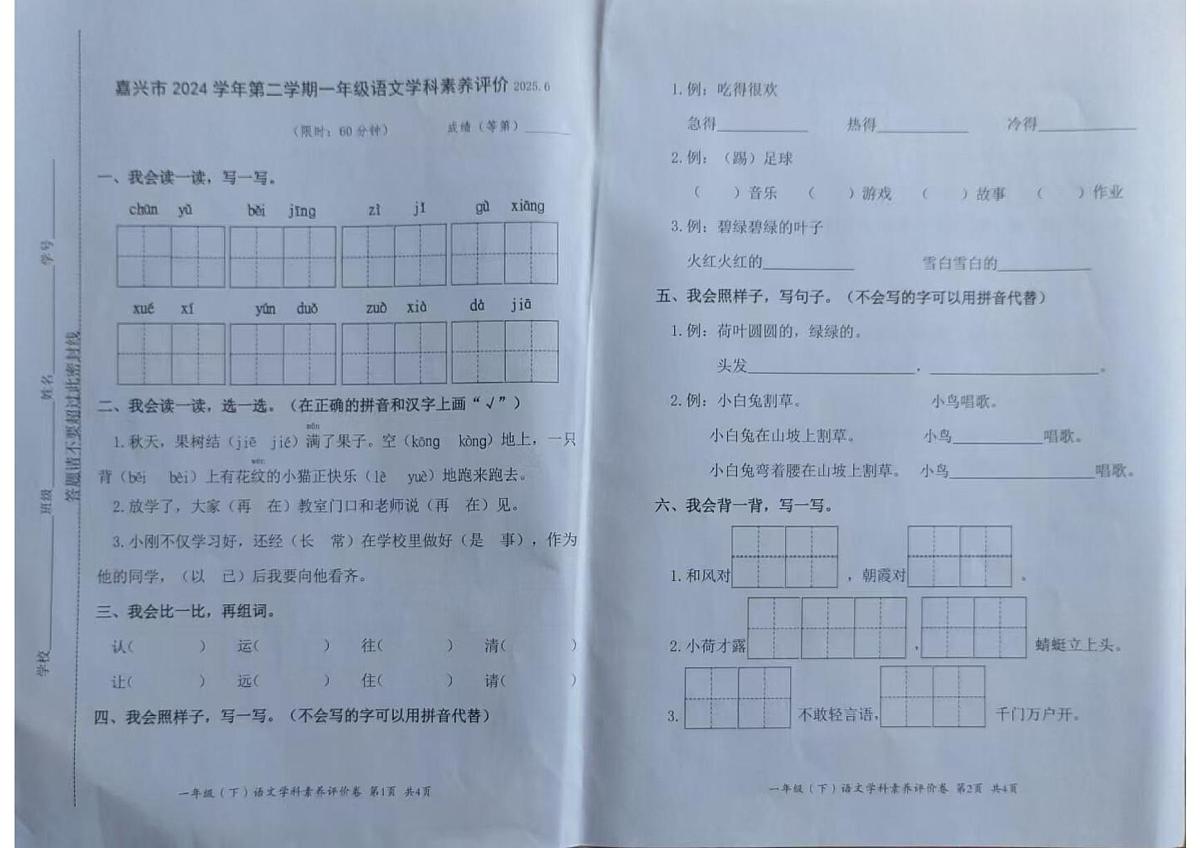 嘉兴市2024学年第二学期一年级语文学科素养评价 2025.6
（限时：60分钟） 成绩（等第）______
一、我会读一读，写一写。
chūn yǔ běi jīng zì jǐ gù xiāng
xué xí yūn duǒ zuò xià dà jiā
二、我会读一读，选一选。（在正确的拼音和汉字上画“√”）
mǎn
1.秋天，果树结（jiē jié）满了果子。空（kōng kòng）地上，一只
wén
背（bēi bèi）上有花纹的小猫正快乐（lè yuè）地跑来跑去。
2.放学了，大家（再 在）教室门口和老师说（再 在）见。
3.小刚不仅学习好，还经（长 常）在学校里做好（是 事），作为
他的同学，（以 已）后我要向他看齐。
三、我会比一比，再组词。
认（ ） 运（ ） 往（ ） 清（ ）
让（ ） 远（ ） 住（ ） 请（ ）
四、我会照样子，写一写。（不会写的字可以用拼音代替）
一年级（下）语文学科素养评价卷 第1页 共4页
学校______ 班级______ 姓名______ 学号______
答题请不要超过此密封线
1.例：吃得很欢
急得______ 热得______ 冷得______
2.例：（踢）足球
（ ）音乐 （ ）游戏 （ ）故事 （ ）作业
3.例：碧绿碧绿的叶子
火红火红的______ 雪白雪白的______
五、我会照样子，写句子。（不会写的字可以用拼音代替）
1.例：荷叶圆圆的，绿绿的。
头发______，______。
2.例：小白兔割草。 小鸟唱歌。
小白兔在山坡上割草。 小鸟______唱歌。
小白兔弯着腰在山坡上割草。 小鸟______唱歌。
六、我会背一背，写一写。
1.和风对 ，朝霞对 。
2.小荷才露 ， 蜻蜓立上头。
3. 不敢轻言语， 千门万户开。
一年级（下）语文学科素养评价卷 第2页 共4页